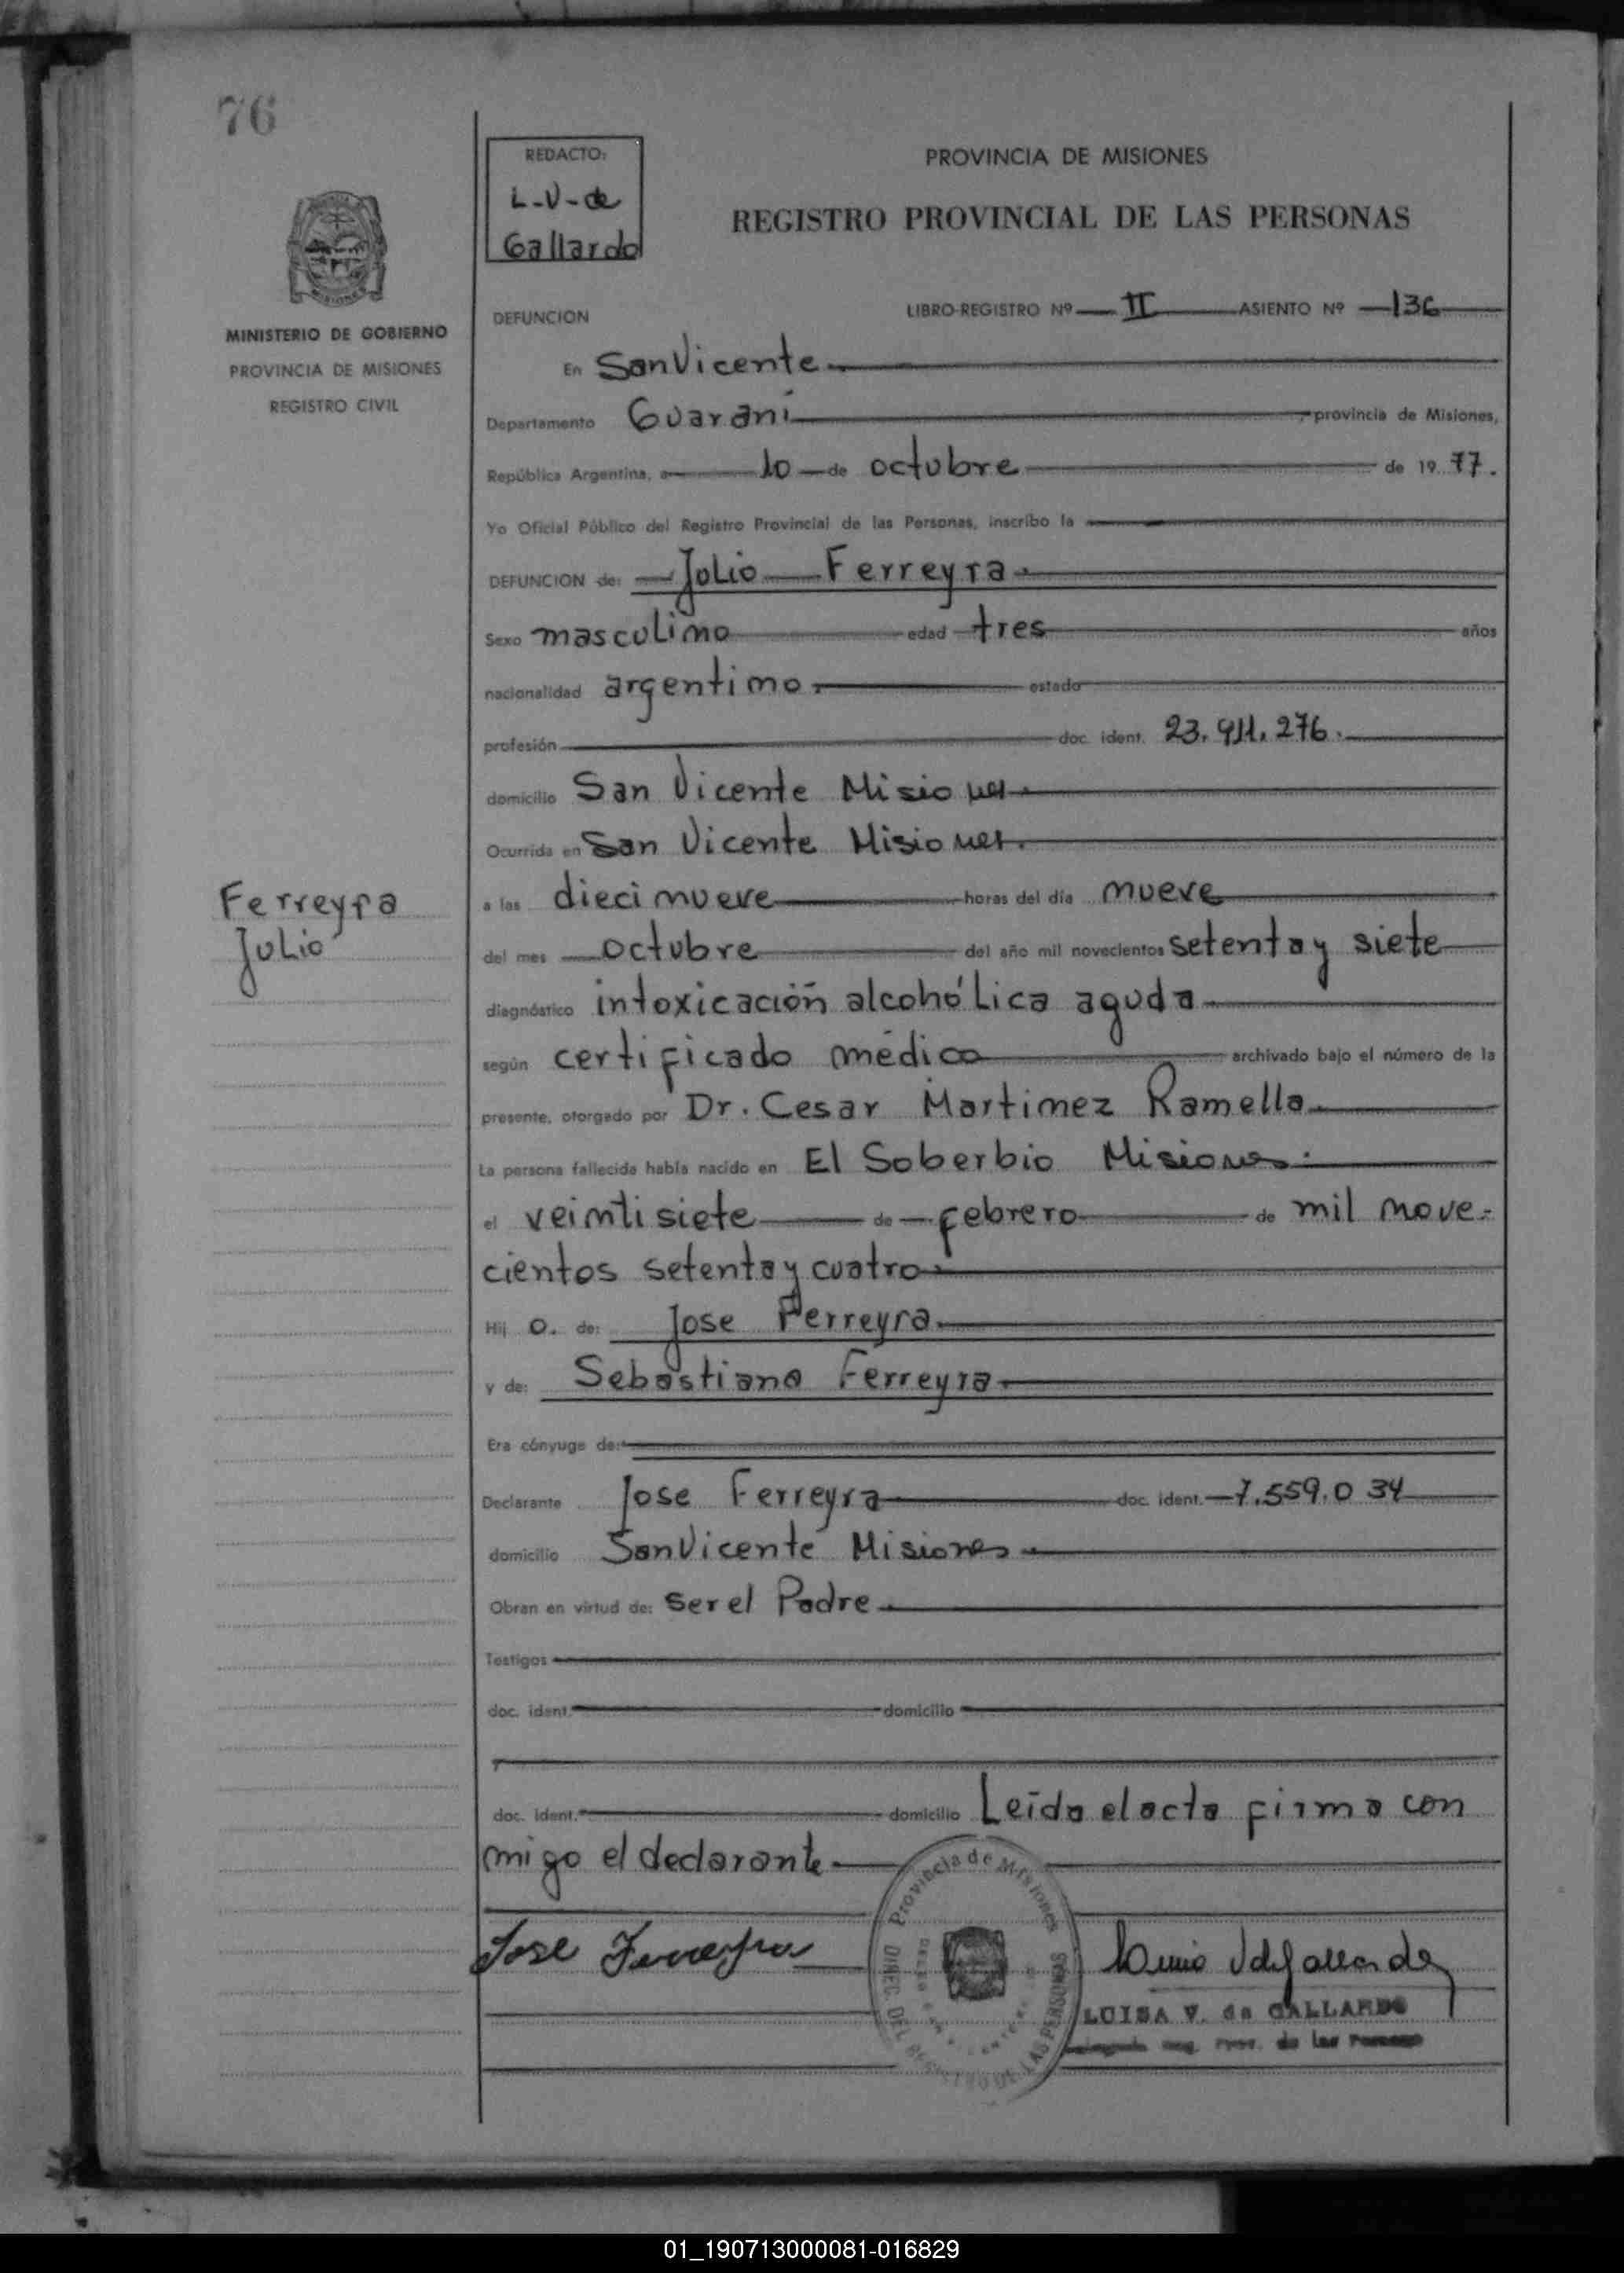 76
REDACTO:
L-V-de
Gallardo
PROVINCIA DE MISIONES
REGISTRO PROVINCIAL DE LAS PERSONAS
MINISTERIO DE GOBIERNO
PROVINCIA DE MISIONES
REGISTRO CIVIL
DEFUNCION
LIBRO-REGISTRO Nº II ASIENTO Nº 136
En San Vicente
Departamento Guaraní, provincia de Misiones,
República Argentina, a 10 de octubre de 19 77.
Yo Oficial Público del Registro Provincial de las Personas, inscribo la
DEFUNCION de: Julio Ferreyra
Sexo masculino edad tres años
nacionalidad argentino. estado
profesión doc. ident. 23.911.276.
domicilio San Vicente Misiones
Ocurrida en San Vicente Misiones.
Ferreyra
Julio
a las diecinueve horas del día nueve
del mes octubre del año mil novecientos setenta y siete
diagnóstico intoxicación alcohólica aguda
según certificado médico archivado bajo el número de la
presente, otorgado por Dr. Cesar Martinez Ramella
La persona fallecida había nacido en El Soberbio Misiones.
el veintisiete de febrero de mil nove-
cientos setenta y cuatro
Hij o. de: Jose Ferreyra
y de: Sebastiana Ferreyra
Era cónyuge de:
Declarante Jose Ferreyra doc. ident. 7.559.034
domicilio San Vicente Misiones
Obran en virtud de: ser el Padre
Testigos
doc. ident. domicilio
doc. ident. domicilio Leída el acta firma con
migo el declarante
Jose Ferreyra
Provincia de Misiones
DIREC. DEL REGISTRO DE LAS PERSONAS
LUISA V. de GALLARDO
Prov. de las Personas
01_190713000081-016829